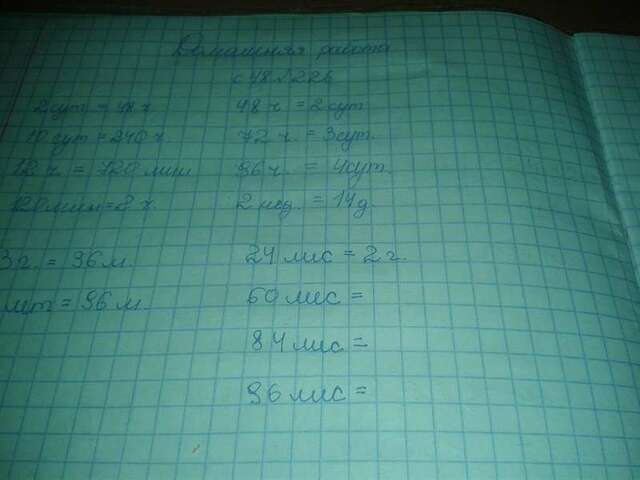 Домашняя работа
с 48 №226
2 сут = 48 ч. 48 ч. = 2 сут
10 сут = 240 ч. 72 ч. = 3 сут.
12 ч. = 720 мин 96 ч. = 4 сут.
120 мин = 2 ч. 2 нед. = 14 д.
3 г. = 36 м. 24 мис = 2 г.
= 96 м. 60 мис =
84 мис =
96 мис =